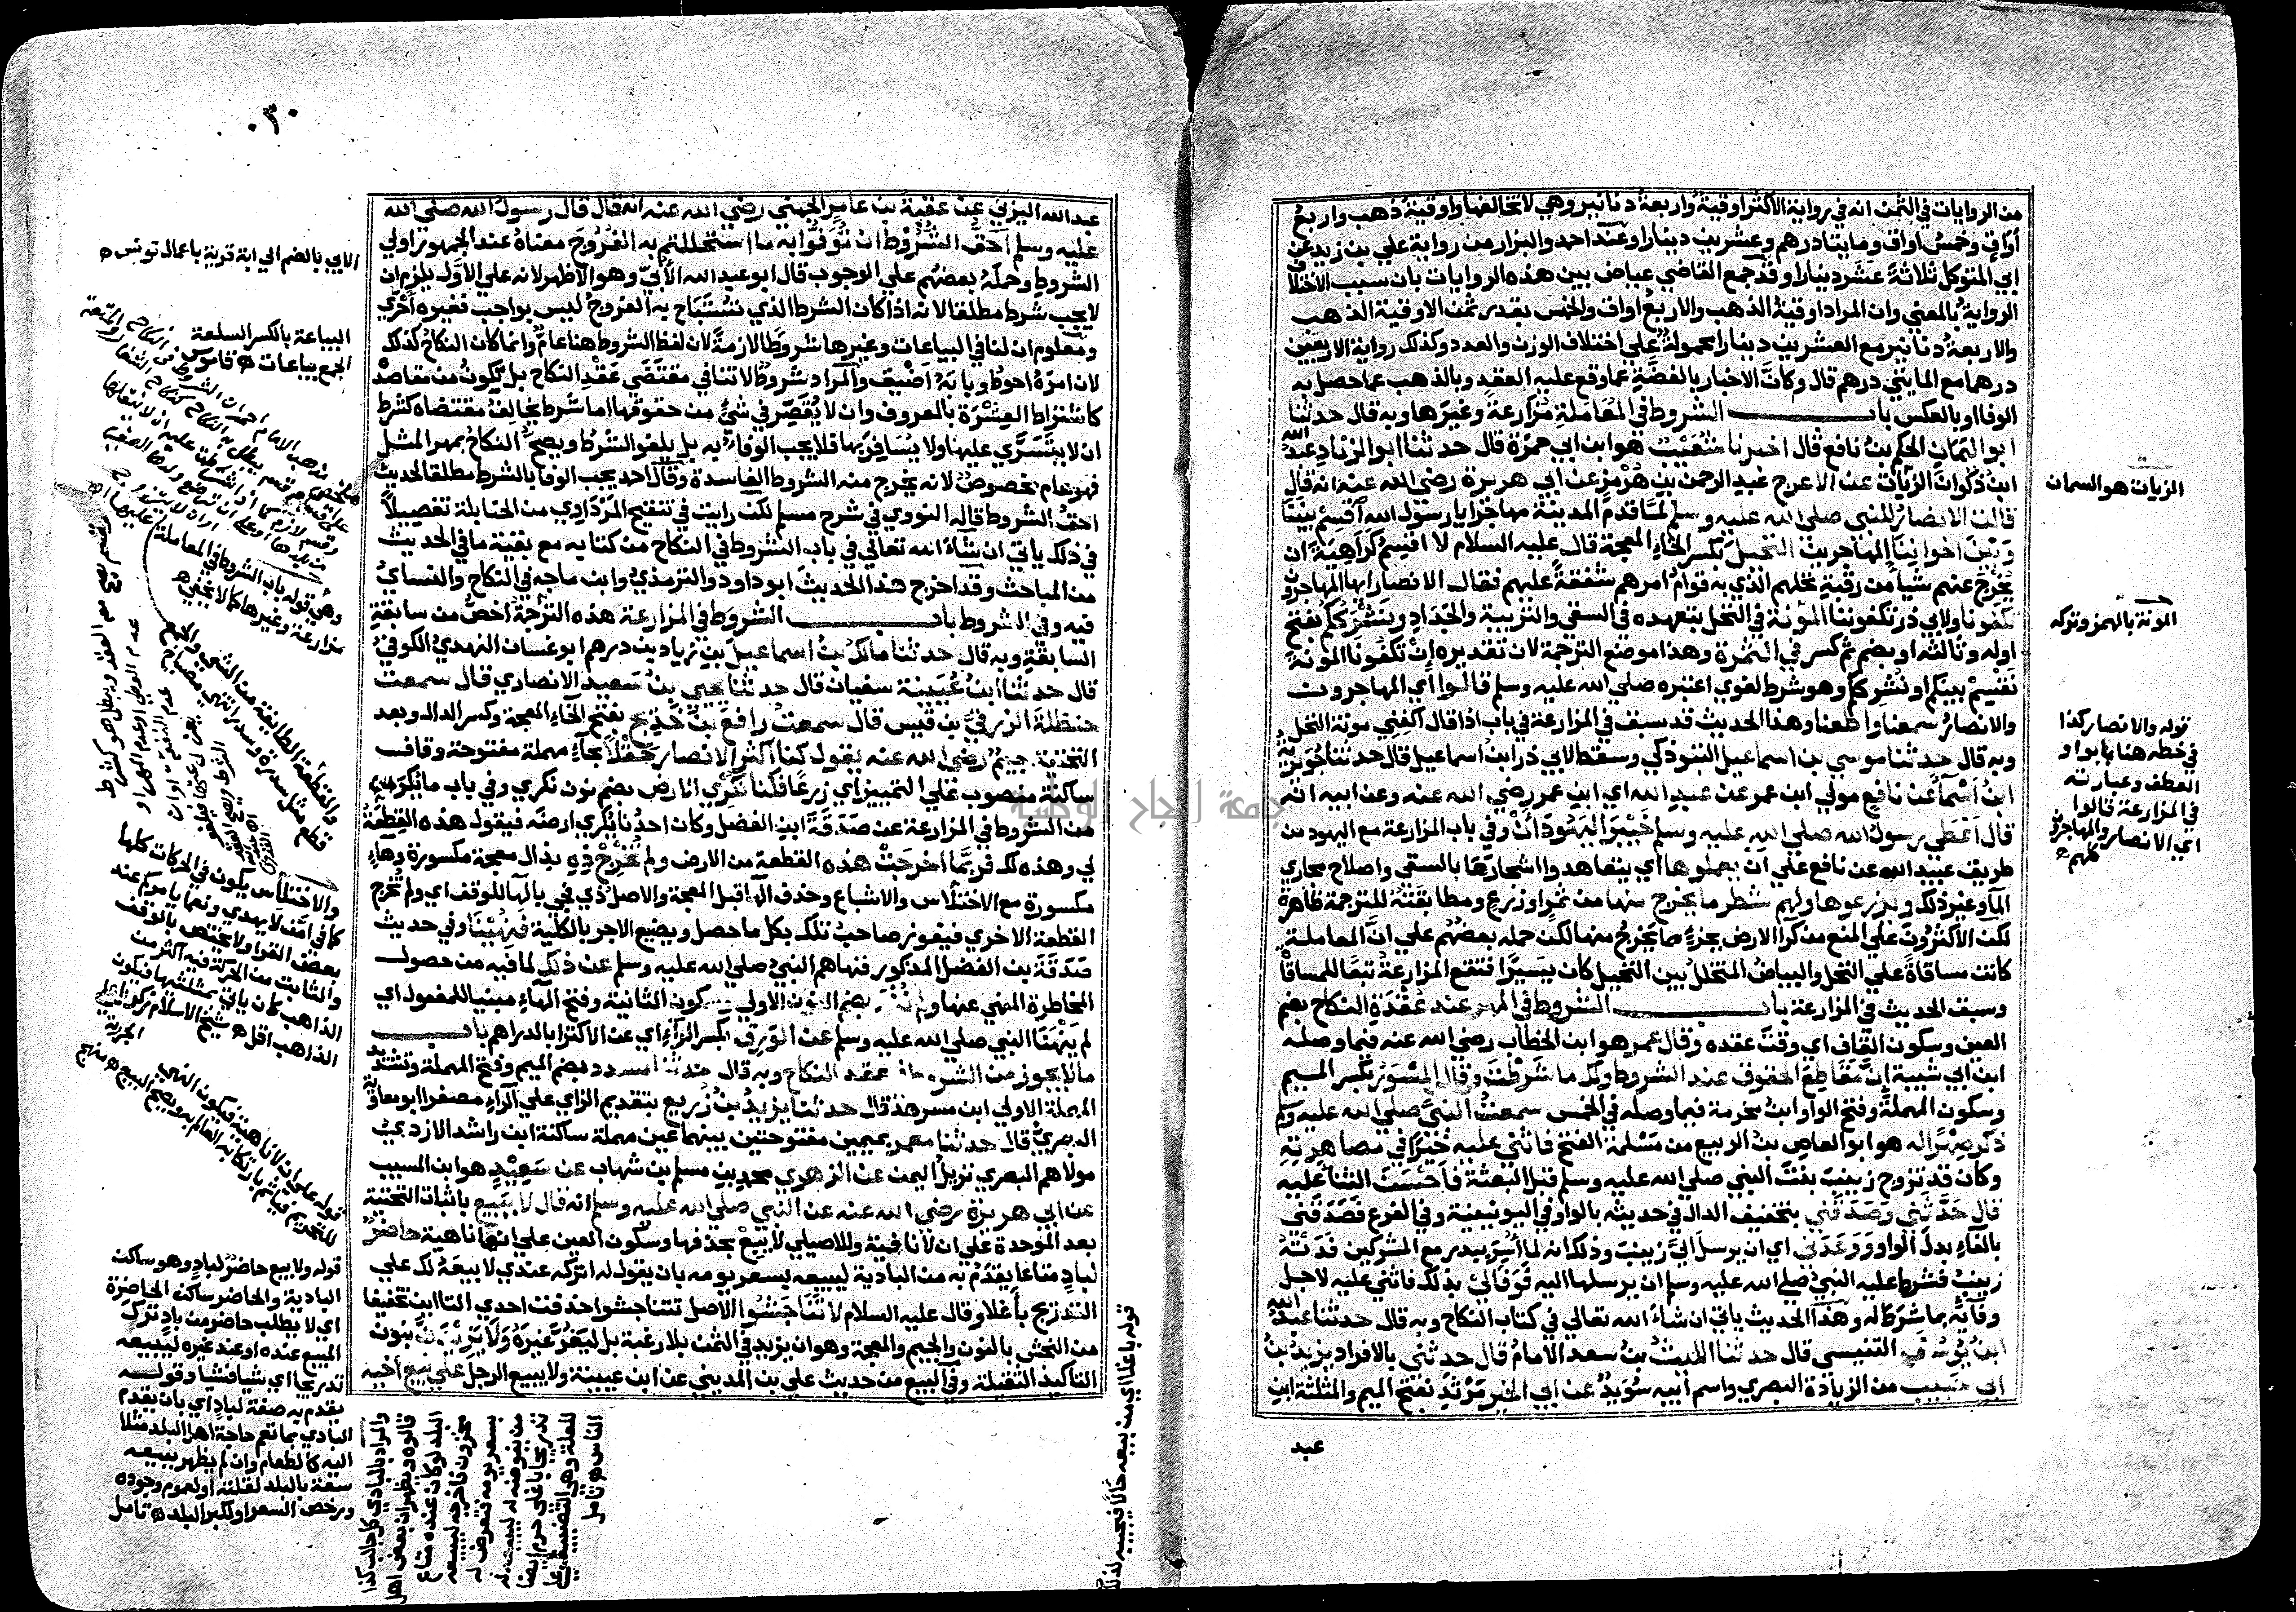 من الروايات في الثمن انه في رواية الاكثر اوقية واربعة دنانير وهي لا تخالفها واوقية ذهب واربع
اواق وخمس اواق ومايتا درهم وعشرين دينارا وعند احمد والبزار من رواية علي بن زيد عن
ابي المتوكل ثلاثة عشر دينارا وقد جمع القاضي عياض بين هذه الروايات بان سبب الاختلاف
الرواية بالمعني وان المراد اوقية الذهب والاربع اواق والخمس بقدر ثمن الاوقية الذهب
والاربعة دنانير مع العشرين دينارا محمولة علي اختلاف الوزن والعدد وكذلك رواية الاربعين
درهما مع المايتي درهم قال وكان الاخبار بالفضة عما وقع عليه العقد وبالذهب عما حصل به
الوفا او بالعكس باب الشروط في المعاملة مزارعة وغيرها وبه قال حدثنا
ابو اليمان الحكم بن نافع قال اخبرنا شعيب هو ابن ابي حمزة قال حدثنا ابو الزناد عبد الله
ابن ذكوان الزيات عن الاعرج عبد الرحمن بن هرمز عن ابي هريرة رضي الله عنه انه قال
قالت الانصار للنبي صلي الله عليه وسلم لما قدم المدينة مهاجرا يا رسول الله اقسم بيننا
وبين اخواننا المهاجرين النخيل بكسر الخاء المعجمة قال عليه السلام لا اقسم كراهية ان
يخرج عنهم شيا من رقبة نخلهم الذي به قوام امرهم شفقة عليهم فقال الانصار ايها المهاجرون
تكفونا ولابي ذر تكفوننا المونة في النخل بتعهده في السقي والتربية والجداد ونشرككم بفتح
اوله وثالثه او بضم ثم كسر في الثمرة وهذا موضع الترجمة لان تقديره ان تكفونا المونة
نقسم بينكم او نشرككم وهو شرط لغوي اعتبره صلي الله عليه وسلم قالوا اي المهاجرون
والانصار سمعنا واطعنا وهذا الحديث قد سبق في المزارعة في باب اذا قال اكفني مونة النخل
وبه قال حدثنا موسي بن اسماعيل التبوذكي وسقط لابي ذر ابن اسماعيل قال حدثنا جويرية
ابن اسما عن نافع مولي ابن عمر عن عبد الله اي ابن عمر رضي الله عنه وعن ابيه انه
قال اعطي رسول الله صلي الله عليه وسلم خيبر اليهود ان وفي باب المزارعة مع اليهود من
طريق عبيد الله عن نافع علي ان يعملوها اي يتعاهدوا اشجارها بالسقي واصلاح مجاري
الما وغير ذلك ويزرعوها ولهم شطر ما يخرج منها من ثمر او زرع ومطابقته للترجمة ظاهرة
لكن الاكثرون علي المنع من كرا الارض بجزء مما يخرج منها لكن حمله بعضهم علي ان المعاملة
كانت مساقاة علي النخل والبياض المتخلل بين النخيل كان يسيرا فتقع المزارعة تبعا للمساقاة
وسبق الحديث في المزارعة باب الشروط في المهر عند عقدة النكاح بضم
العين وسكون القاف اي وقت عقده وقال عمر هو ابن الخطاب رضي الله عنه فيما وصله
ابن ابي شيبة ان مقاطع الحقوق عند الشروط ولك ما شرطت وقال المسور بكسر الميم
وسكون المهملة وفتح الواو ابن مخرمة فيما وصله في الخمس سمعت النبي صلي الله عليه وسلم
ذكر صهرا له هو ابو العاص بن الربيع من مسلمة الفتح فاثني عليه خيرا في مصاهرته
وكان قد تزوج زينب بنت النبي صلي الله عليه وسلم قبل البعثة فاحسن الثنا عليه
قال حدثني وصدقني بتخفيف الدال في حديثه بالواو في اليونينية وفي الفرع فصدقني
بالفاء بدل الواو ووعدني اي ان يرسل الي زينب وذلك انه لما اسر ببدر مع المشركين فدته
زينب فشرط عليه النبي صلي الله عليه وسلم ان يرسلها اليه فوفي لي بذلك فاثني عليه لاجل
وفايه بما شرط له وهذا الحديث ياتي ان شاء الله تعالي في كتاب النكاح وبه قال حدثنا عبد الله
ابن يوسف التنيسي قال حدثنا الليث بن سعد الامام قال حدثني بالافراد يزيد بن
ابي حبيب من الزيادة البصري واسم ابيه سويد عن ابي الخير مرثد بفتح الميم والمثلثة ابن
عبد
الزيات هو السمان
المونة بالهمز وتركه
قوله والانصار كذا
في خطه هنا بواو
العطف وعبارته
في المزارعة قالوا
اي الانصار والمهاجرون
كلهم
٠٣٠
عبد الله اليزني عن عقبة بن عامر الجهني رضي الله عنه انه قال قال رسول الله صلي الله
عليه وسلم احق الشروط ان توفوا به ما استحللتم به الفروج معناه عند الجمهور اولي
الشروط وحمله بعضهم علي الوجوب قال ابو عبد الله الابي وهو الاظهر لانه علي الاول يلزم ان
لا يجب شرط مطلقا لانه اذا كان الشرط الذي تستباح به الفروج ليس بواجب فغيره احري
ومعلوم ان لنا في البياعات وغيرها شروطا لازمة لان لفظ الشروط هنا عام وانما كان النكاح كذلك
لان امره احوط وبابه اضيق والمراد شروط لا تنافي مقتضي عقد النكاح بل تكون من مقاصده
كاشتراط العشرة بالمعروف وان لا يقصر في شي من حقوقها اما شرط يخالف مقتضاه كشرط
ان لا يتسري عليها ولا يسافر بها فلا يجب الوفاء به بل يلغو الشرط ويصح النكاح بمهر المثل
فهو عام مخصوص لانه يخرج منه الشروط الفاسدة وقال احمد يجب الوفا بالشرط مطلقا لحديث
احق الشروط قاله النووي في شرح مسلم لكن رايت في تنقيح المرداوي من الحنابلة تفصيلا
في ذلك ياتي ان شاء الله تعالي في باب الشروط في النكاح من كتابه مع بقية ما في الحديث
من المباحث وقد اخرج هذا الحديث ابو داود والترمذي وابن ماجه في النكاح والنساي
فيه وفي الشروط باب الشروط في المزارعة هذه الترجمة اخص من سابقة
السابقة وبه قال حدثنا مالك بن اسماعيل بن زياد بن درهم ابو غسان النهدي الكوفي
قال حدثنا ابن عيينة سفيان قال حدثنا يحيي بن سعيد الانصاري قال سمعت
حنظلة الزرقي بن قيس قال سمعت رافع بن خديج بفتح الخاء المعجمة وكسر الدال وبعد
التحتية جيم رضي الله عنه يقول كنا اكثر الانصار حقلا بحاء مهملة مفتوحة وقاف
ساكنة منصوب علي التمييز اي زرعا فكنا نكري الارض بضم نون نكري وفي باب ما يكره
من الشروط في المزارعة عن صدقة ابن الفضل وكان احدنا يكري ارضه فيقول هذه القطعة
لي وهذه لك فربما اخرجت هذه القطعة من الارض ولم تخرج ذه بذال معجمة مكسورة وهاء
مكسورة مع الاختلاس والاشباع وحذف الها قبل المعجمة والاصل ذي فجي بالها للوقف اي ولم تخرج
القطعة الاخري فيفوز صاحب تلك بكل ما حصل ويضيع الاجر بالكلية فنهينا وفي حديث
صدقة بن الفضل المذكور فنهاهم النبي صلي الله عليه وسلم عن ذلك لما فيه من حصول
المخاطرة المنهي عنها ولم ننه بضم النون الاولي وسكون الثانية وفتح الهاء مبنيا للمفعول اي
لم ينهنا النبي صلي الله عليه وسلم عن الورق بكسر الراء اي عن الاكترا بالدراهم باب
ما لا يجوز من الشروط في عقد النكاح وبه قال حدثنا مسدد بضم الميم وفتح المهملة وتشديد
المهملة الاولي ابن مسرهد قال حدثنا يزيد بن زريع بتقديم الزاي علي الراء مصغرا ابو معاوية
البصري قال حدثنا معمر بميمين مفتوحتين بينهما عين مهملة ساكنة ابن راشد الازدي
مولاهم البصري نزيل اليمن عن الزهري محمد بن مسلم بن شهاب عن سعيد هو ابن المسيب
عن ابي هريرة رضي الله عنه عن النبي صلي الله عليه وسلم انه قال لا يبيع باثبات التحتية
بعد الموحدة علي ان لا نافية وللاصيلي لا يبع بحذفها وسكون العين علي انها ناهية حاضر
لباد متاعا يقدم به من البادية ليبيعه بسعر يومه بان يقول له اتركه عندي لابيعه لك علي
التدريج باغلا وقال عليه السلام لا تناجشوا الاصل تتناجشوا حذفت احدي التاين تخفيفا
من النجش بالنون والجيم والمعجمة وهو ان يزيد في الثمن بلا رغبة بل ليغر غيره ولا يزيدن بنون
التاكيد الثقيلة وفي البيع من حديث علي بن المديني عن ابن عيينة ولا يبيع الرجل علي بيع اخيه
الابي بالضم الي ابة قرية باعمال تونس
البياعة بالكسر السلعة
الجمع بياعات قاموس
وهي قوله باب الشروط في المعاملة
مزارعة وغيرها كما لا يخفي
والاختلاس يكون في الحركات كلها
كما في امن لا يهدي ونعما يامركم عند
بعض القرا ولا يختص بالوقف
والثابت من الحركة فيه اكثر من
الذاهب كان ياتي بثلثيها فيكون
الذاهب اقل شيخ الاسلام زكريا علي
الجزرية
قوله علي ان لا ناهية فيكون النهي
للتحريم فياثم بارتكابه العالم به ويصح البيع
قوله ولا يبيع حاضر لباد وهو ساكن
البادية والحاضر ساكن الحاضرة
اي لا يطلب حاضر من باد ترك
المبيع عنده او عند غيره ليبيعه
تدريجا اي شيا فشيا وقوله
يقدم به صفة لباد اي بان يقدم
البادي بما تعم حاجة اهل البلد مثلا
اليه كالطعام وان لم يظهر ببيعه
سعة بالبلد لقلته او لعموم وجوده
ورخص السعر او لكبر البلد تامل
قوله باغلا اي من بيعه حالا فيجيبه لذلك
جامعة النجاح الوطنية